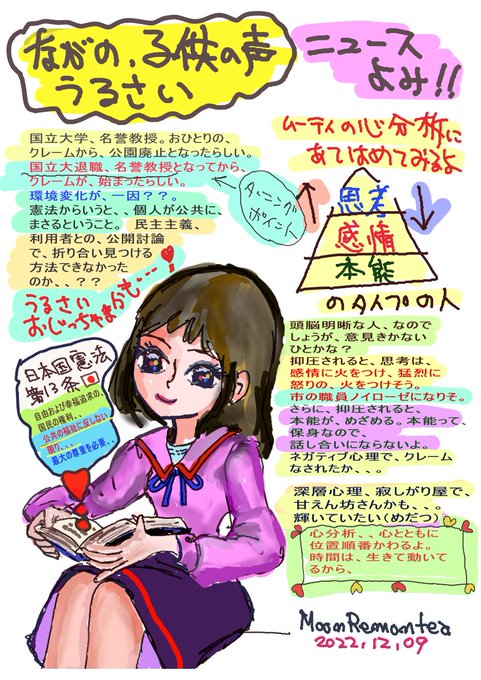 ながの、子供の声
うるさい
ニュース
よみ!!
国立大学、名誉教授。おひとりの、
クレームから、公園廃止となったらしい。
国立大退職、名誉教授となってから、
クレームが、始まったらしい。
環境変化が、一因??。
憲法からいうと、、個人が公共に、
まさるということ。 民主主義、
利用者との、公開討論
で、折り合い見つける
方法できなかった
のか、、??
うるさい
おじっちゃまかも…!
ターニング
ポイント
ムーティの心分析に
あてはめてみるよ
思考
感情
本能
のタイプの人
頭脳明晰な人、なので
しょうが、意見きかない
ひとかな?
抑圧されると、思考は、
感情に火をつけ、猛烈に
怒りの、火をつけそう。
市の職員ノイローゼになりそ。
さらに、抑圧されると、
本能が、めざめる。本能って、
保身なので、
話し合いにならないよ。
ネガティブ心理で、クレーム
なされたか、、。
深層心理、寂しがり屋で、
甘えん坊さんかも、、。
輝いていたい(めだつ)
心分析、、心とともに
位置順番かわるよ。
時間は、生きて動いて
るから、
日本国憲法
第13条
自由および幸福追求の、
国民の権利、、
公共の福祉に反しない
限り、、、
最大の尊重を必要、、
MoonRemontea
2022,12,09